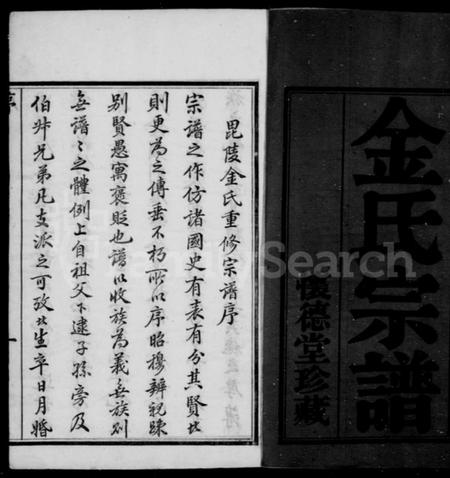 金氏宗譜
懷德堂珍藏
毘陵金氏重修宗譜序
宗譜之作仿諸國史有表有分其賢者
則更為之傳垂不朽所以序昭穆辨親疎
別賢愚寓褒貶也譜以收族為義無族則
無譜〻之體例上自祖父下逮子孫旁及
伯叔兄弟凡支派之可攷者生卒日月婚
序
FamilySearch